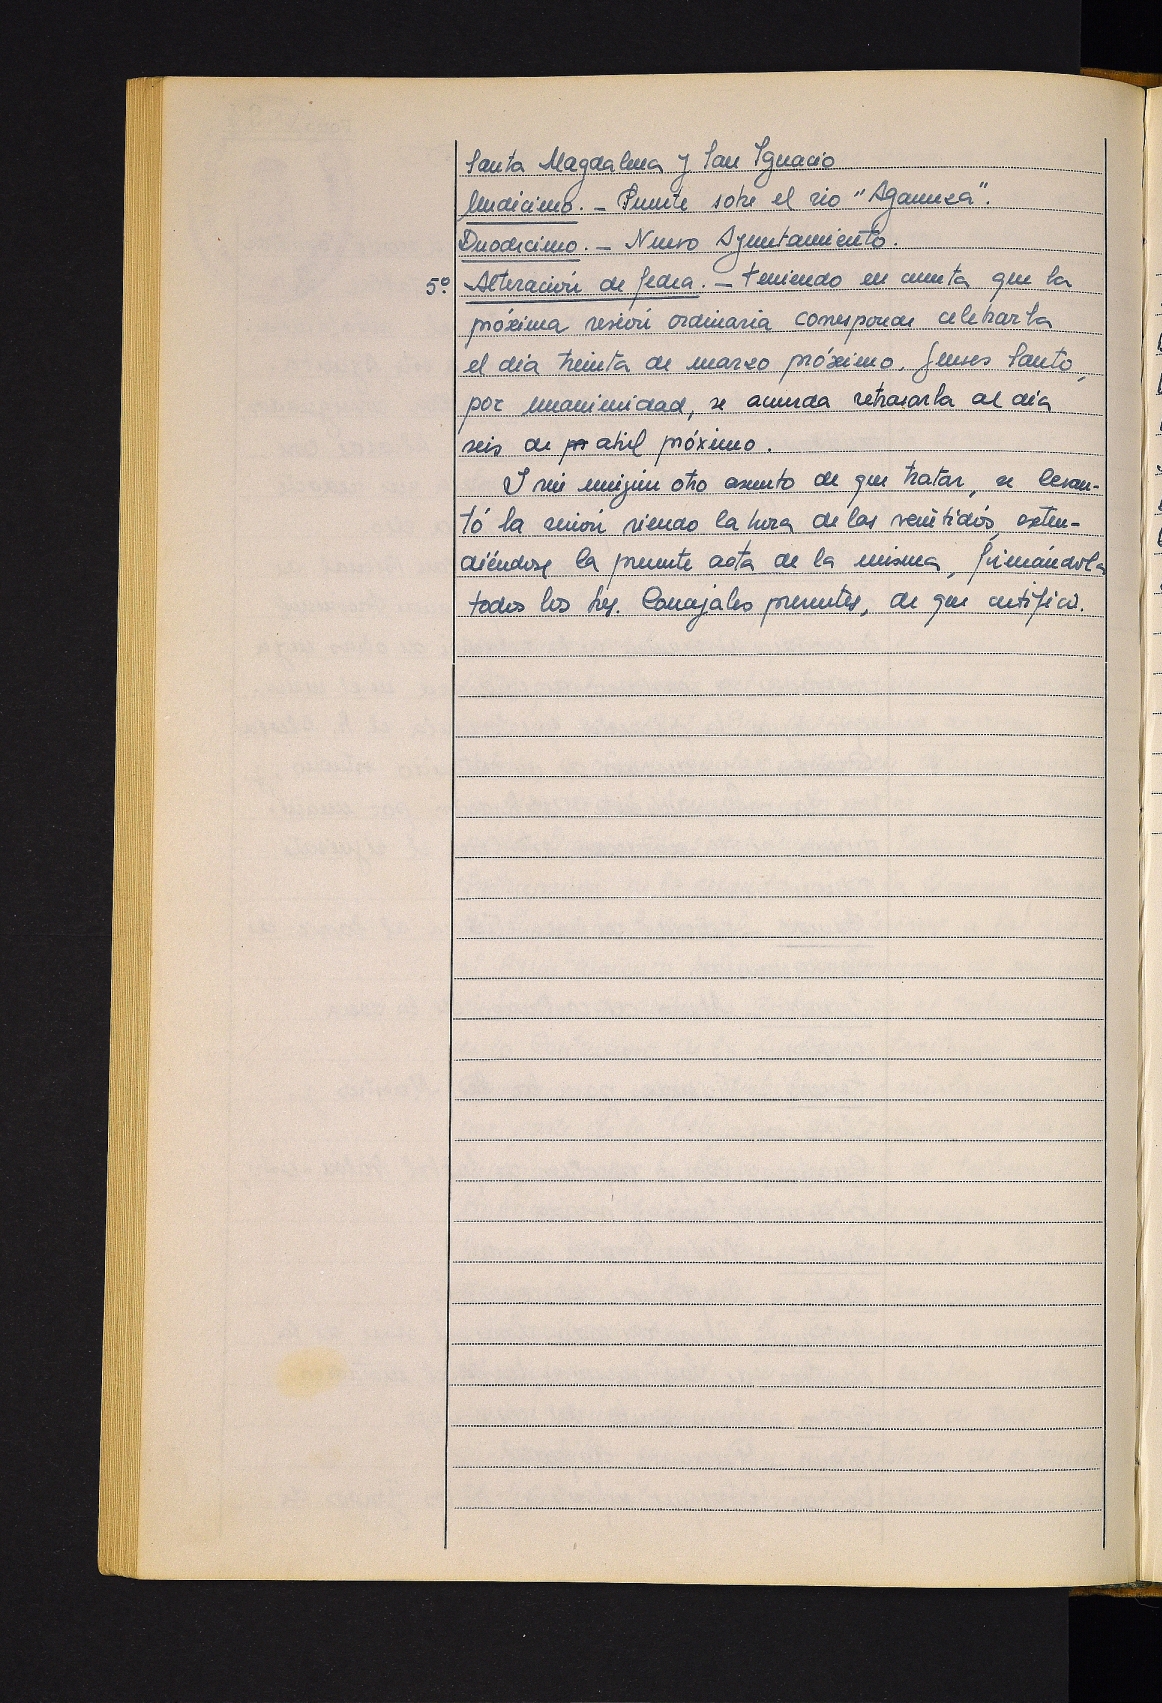 Santa Magdalena y San Ignacio
Undécimo. - Puente sobre el rio "Agamuza".
Duodecimo. - Nuevo Ayuntamiento.
5º Alteración de fecha. - Teniendo en cuenta que la
próxima sesión ordinaria corresponde celebrarla
el día treinta de marzo próximo, Jueves Santo,
por unanimidad, se acuerda retrasarla al día
seis de abril próximo.
Y sin ningún otro asunto de que tratar, se levan-
tó la sesión siendo la hora de las veintidós, exten-
diéndose la presente acta de la misma, firmándola
todos los Srs. Concejales presentes, de que certifico.